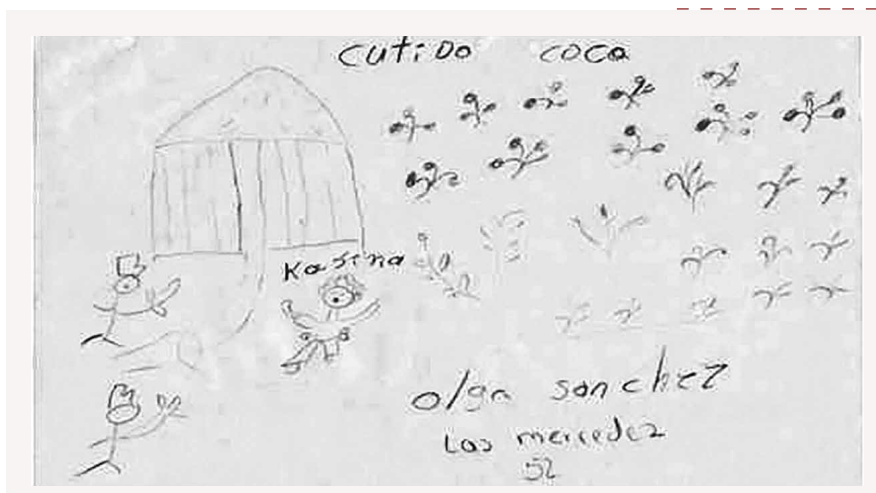 cutido coca
Kasina
olga sanchez
Las mercedez
52